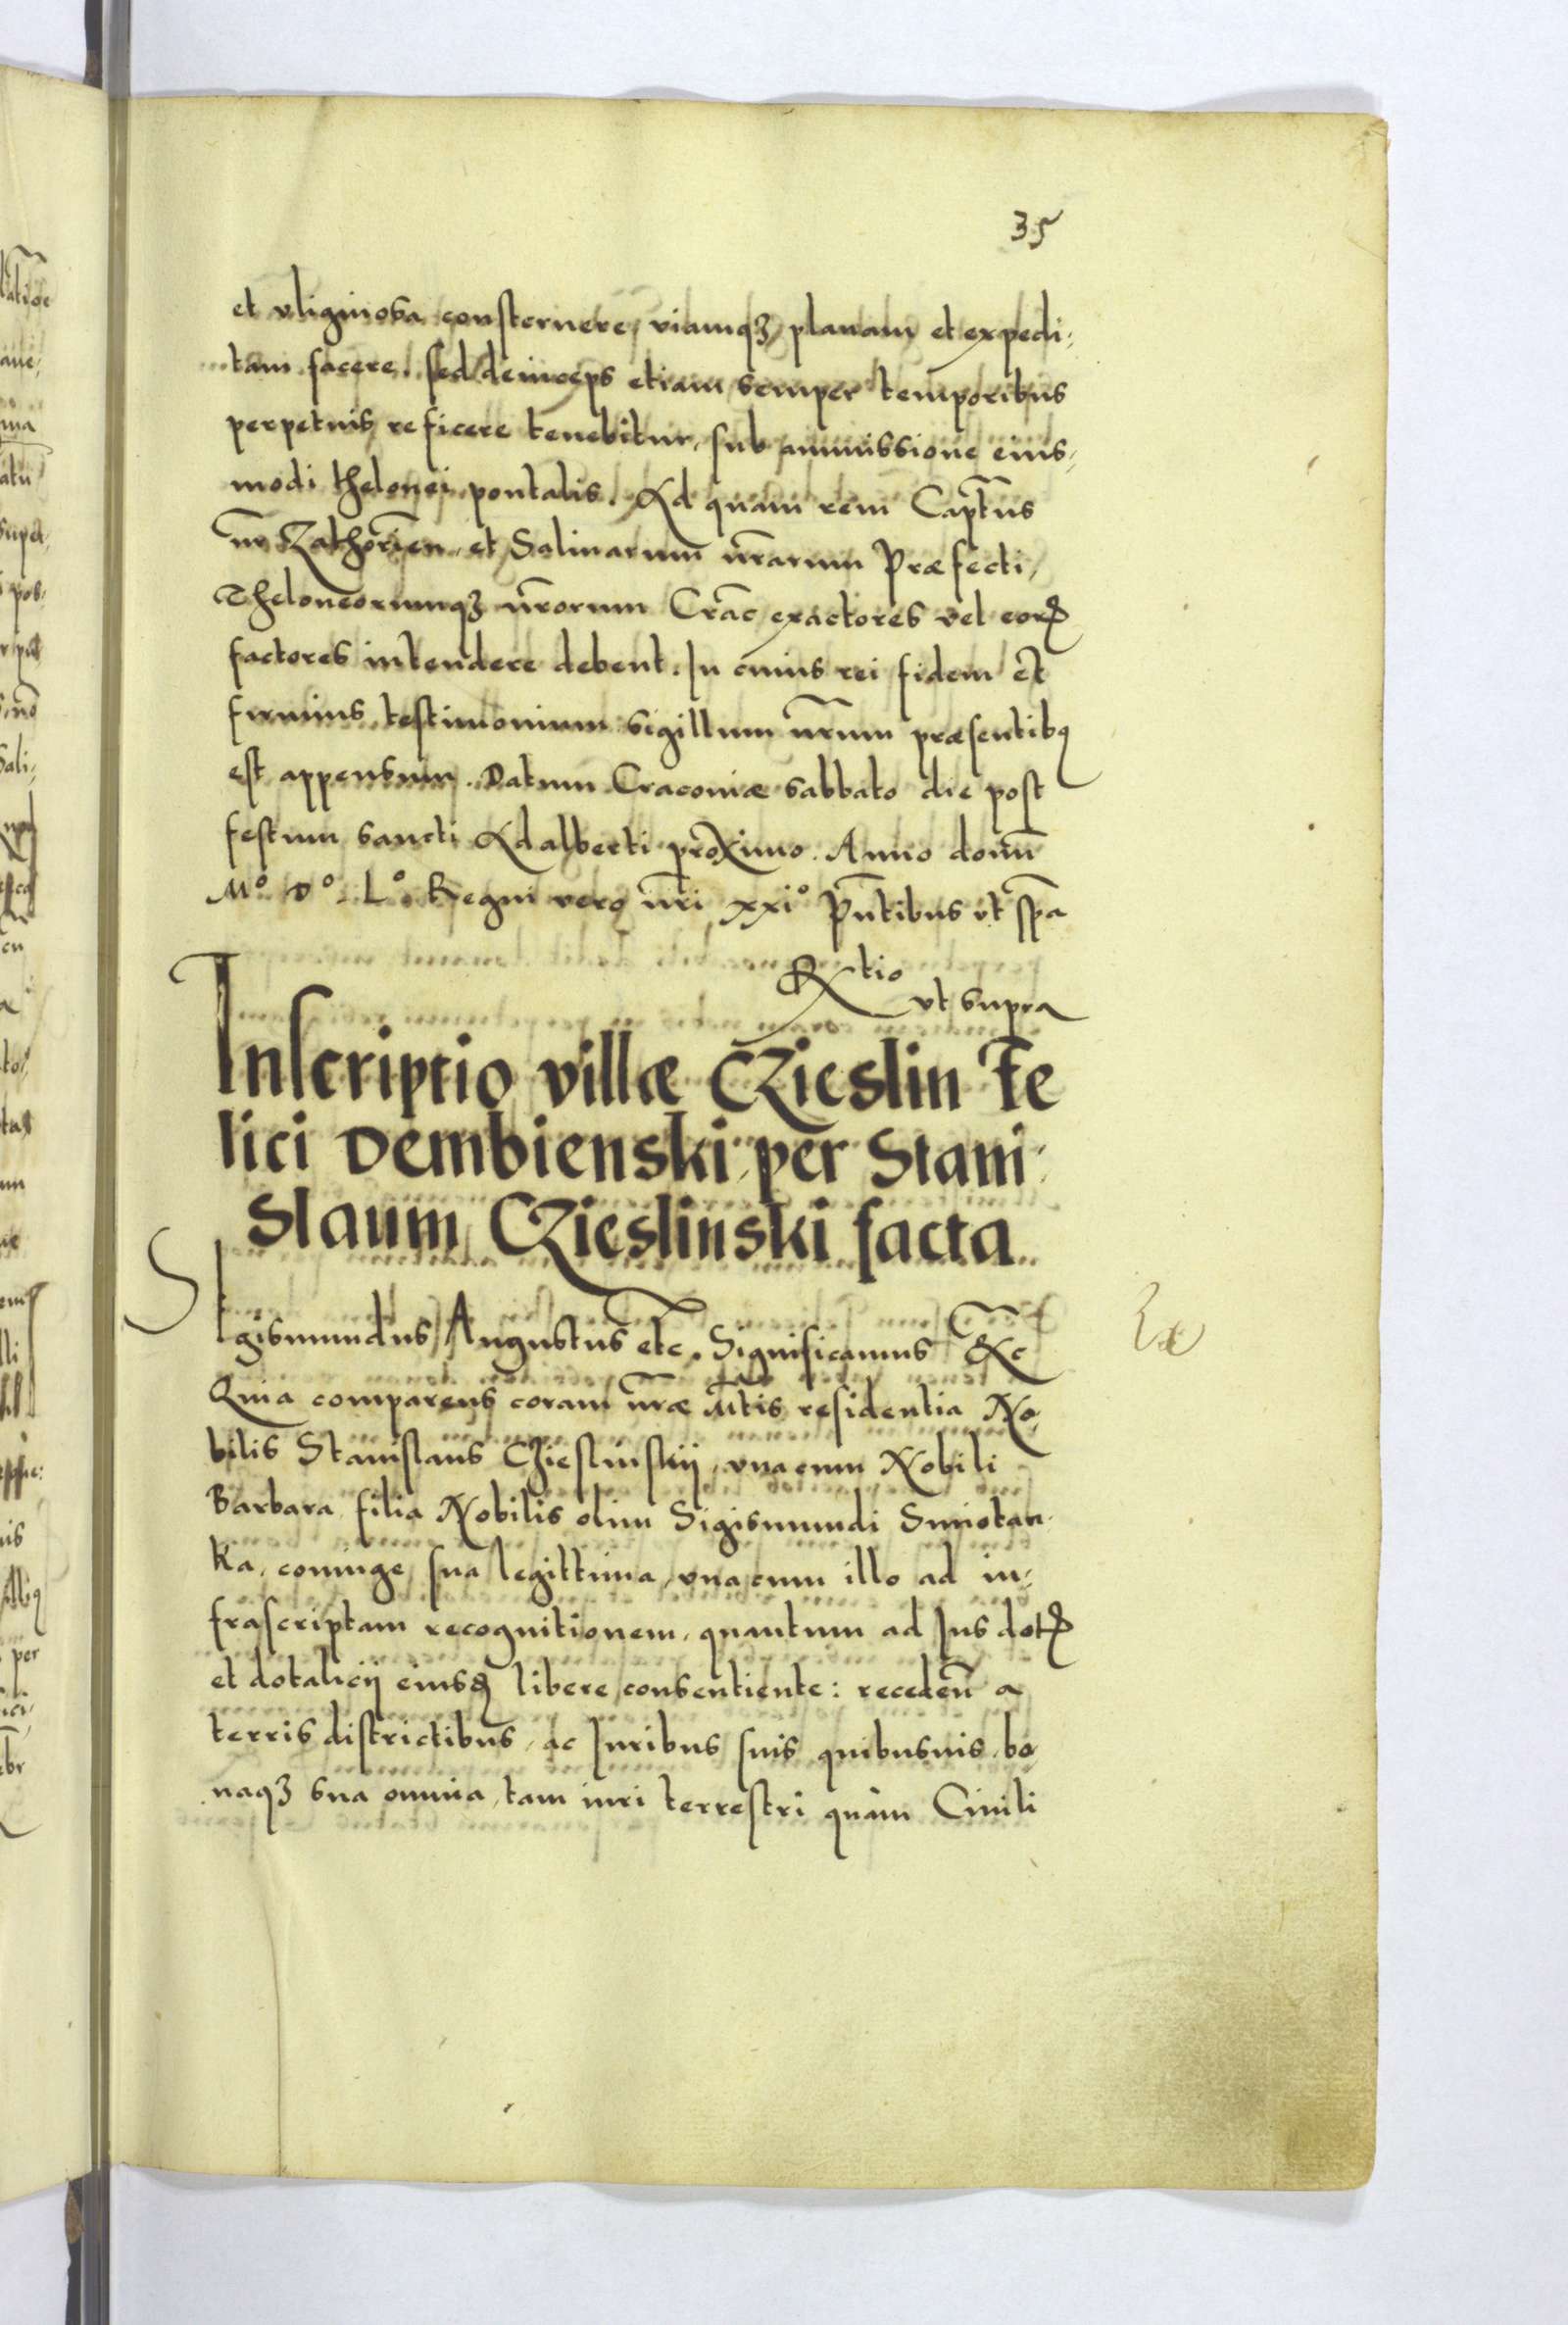 35
et vliginosa consternere, viamqꝫ planam et expedi-
tam facere. sed deinceps etiam semper temporibus
perpetuis reficere tenebitur, sub ammissione eius-
modi thelonei pontalis. Ad quam rem Captūs
nr̄ Zathorieñ. et Salinarum nr̄arum Præfecti,
Theloneorumqꝫ nr̄orum Crac̄ exactores vel eorꝝ
factores intendere debent. In cuius rei fidem et
firmius testimonium sigillum nr̄um præsentibꝰ
est appensum. Datum Cracouiæ sabbato die post
festum sancti Adalberti proximo. Anno domī
Mº Dº Lº Regni vero nr̄i xxiº Pn̄tibus vt sp̄a
Rtio
vt supra
Inscriptio villæ CZieslin Fe
lici Dembienski per Stani-
slaum CZieslinski facta
Sigismundus Augustus etc. Significamus &c
Quia comparens coram nr̄æ M̄tis residentia No-
bilis Stanislaus Czieslinskij, vnacum Nobili
Barbara filia Nobilis olim Sigismundi Smiotan-
ka, coniuge sua legittima, vna cum illo ad in-
frascriptam recognitionem, quantum ad Ius dotꝭ
et dotalicij eiusdꝫ libere consentiente: recedeñ a
terris districtibus, ac Iuribus suis quibusuis, bo
naqꝫ sua omnia, tam iuri terrestri quàm Ciuili